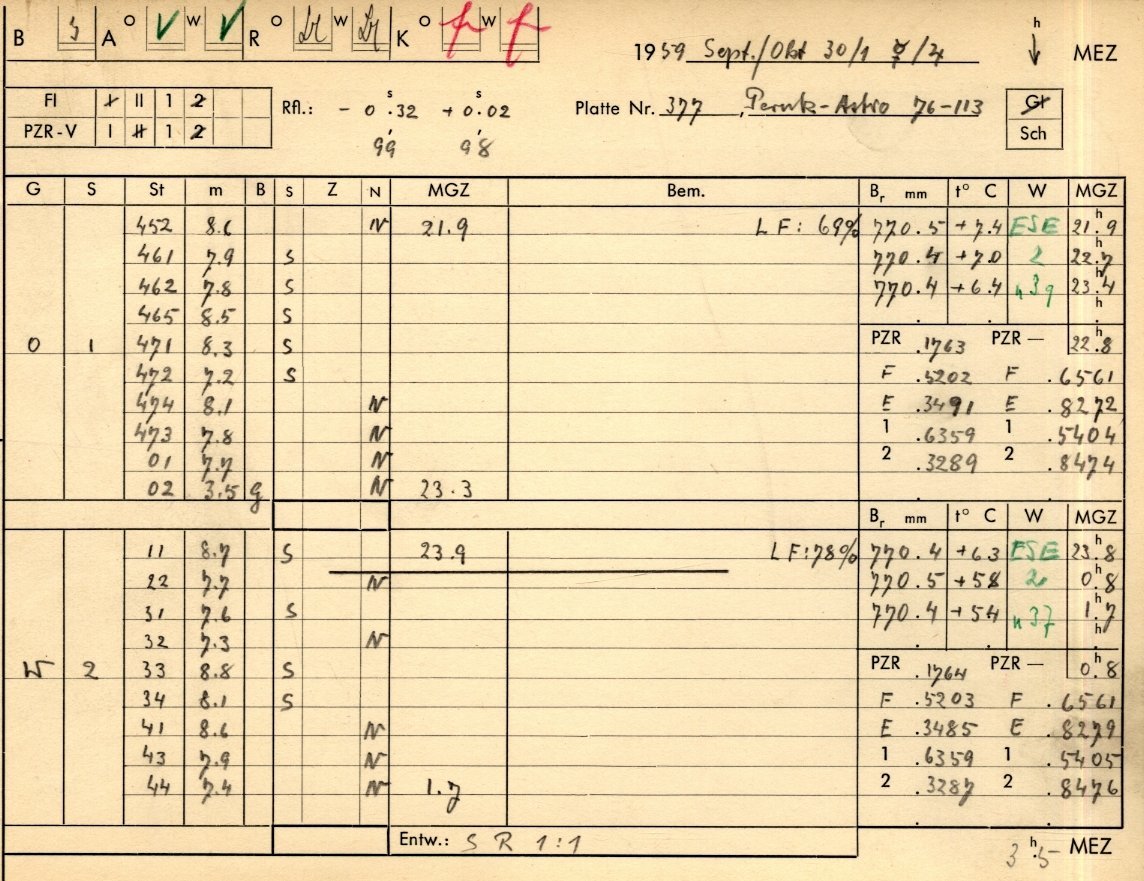 B 3 A O V W V R O Lr W Lr K O f W f
1959 Sept./Okt 30/1 /4 h ↓ MEZ
Fl I II 1 2
PZR-V I II 1 2
Rfl.: - 0 s.32 + 0 s.02
99 98
Platte Nr. 377, Peruk-Astro 76-113
Gl
Sch
G S St m B S Z N MGZ Bem. Br mm t° C W MGZ
452 8.6 N 21.9 LF: 69% 770.5 +7.4 ESE 21h.9
461 7.9 S 770.4 +7.0 2 22h.7
462 7.8 S 770.4 +6.4 n 3q 23h.4
465 8.5 S h
0 1 471 8.3 S PZR .1763 PZR — 22h.8
472 7.2 S F .5202 F .6561
474 8.1 N E .3491 E .8272
473 7.8 N 1 .6359 1 .5404
01 7.7 N 2 .3289 2 .8474
02 3.5 g N 23.3
Br mm t° C W MGZ
11 8.7 S 23.9 LF: 78% 770.4 +6.3 ESE 23h.8
22 7.7 N 770.5 +5.8 2 0h.8
31 7.6 S 770.4 +5.4 n 37 1h.7
32 7.3 N h
W 2 33 8.8 S PZR .1764 PZR — 0h.8
34 8.1 S F .5203 F .6561
41 8.6 N E .3485 E .8279
43 7.9 N 1 .6359 1 .5405
44 7.4 N 1.7 2 .3287 2 .8476
Entw.: S R 1:1
3 h.5 MEZ